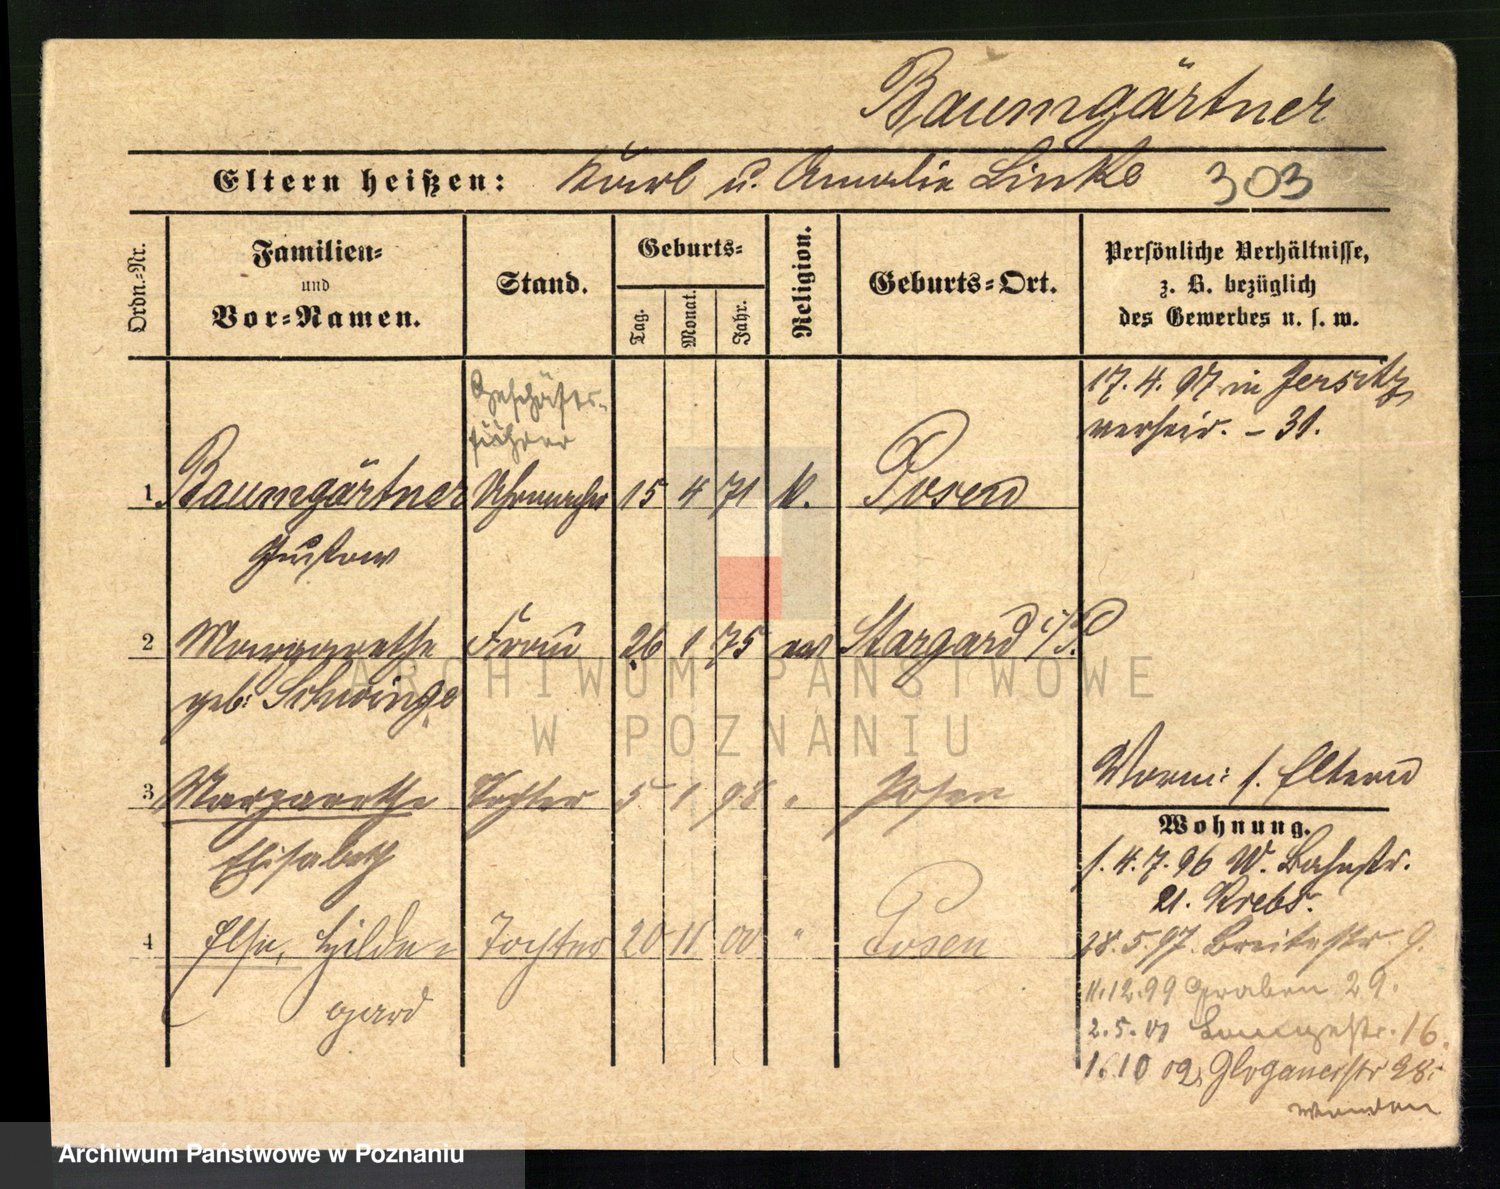 Baumgärtner
Eltern heißen: Karl u. Amalie Linke 303
Ordn.-Nr.
Familien-
und
Vor-Namen.
Stand.
Geburts-
Tag.
Monat.
Jahr.
Religion.
Geburts-Ort.
Persönliche Verhältnisse,
z. B. bezüglich
des Gewerbes u. s. w.
17. 4. 97 in Jersitz
verheir. - 31.
Geschäfts-
führer
1 Baumgärtner Uhrmacher 15 4 71 k. Posen
Gustav
2 Margarethe Frau 26 1 75 ev Stargard i/P.
geb: Schwinge
3 Margarethe Tochter 5 1 98 " Posen
Elisabeth
4 Else, Hilde- Tochter 20 11 00 " Posen
gard
Vorm: s. Eltern
Wohnung.
1. 4. 7. 96 W. Bahnstr.
21. Krebs.
28. 5. 97. Breitestr. 9.
11. 12. 99 Graben 29.
2. 5. 01 Langestr. 16.
16 10 02 Glogauerstr 98.
wenden
ARCHIWUM PAŃSTWOWE
W POZNANIU
Archiwum Państwowe w Poznaniu